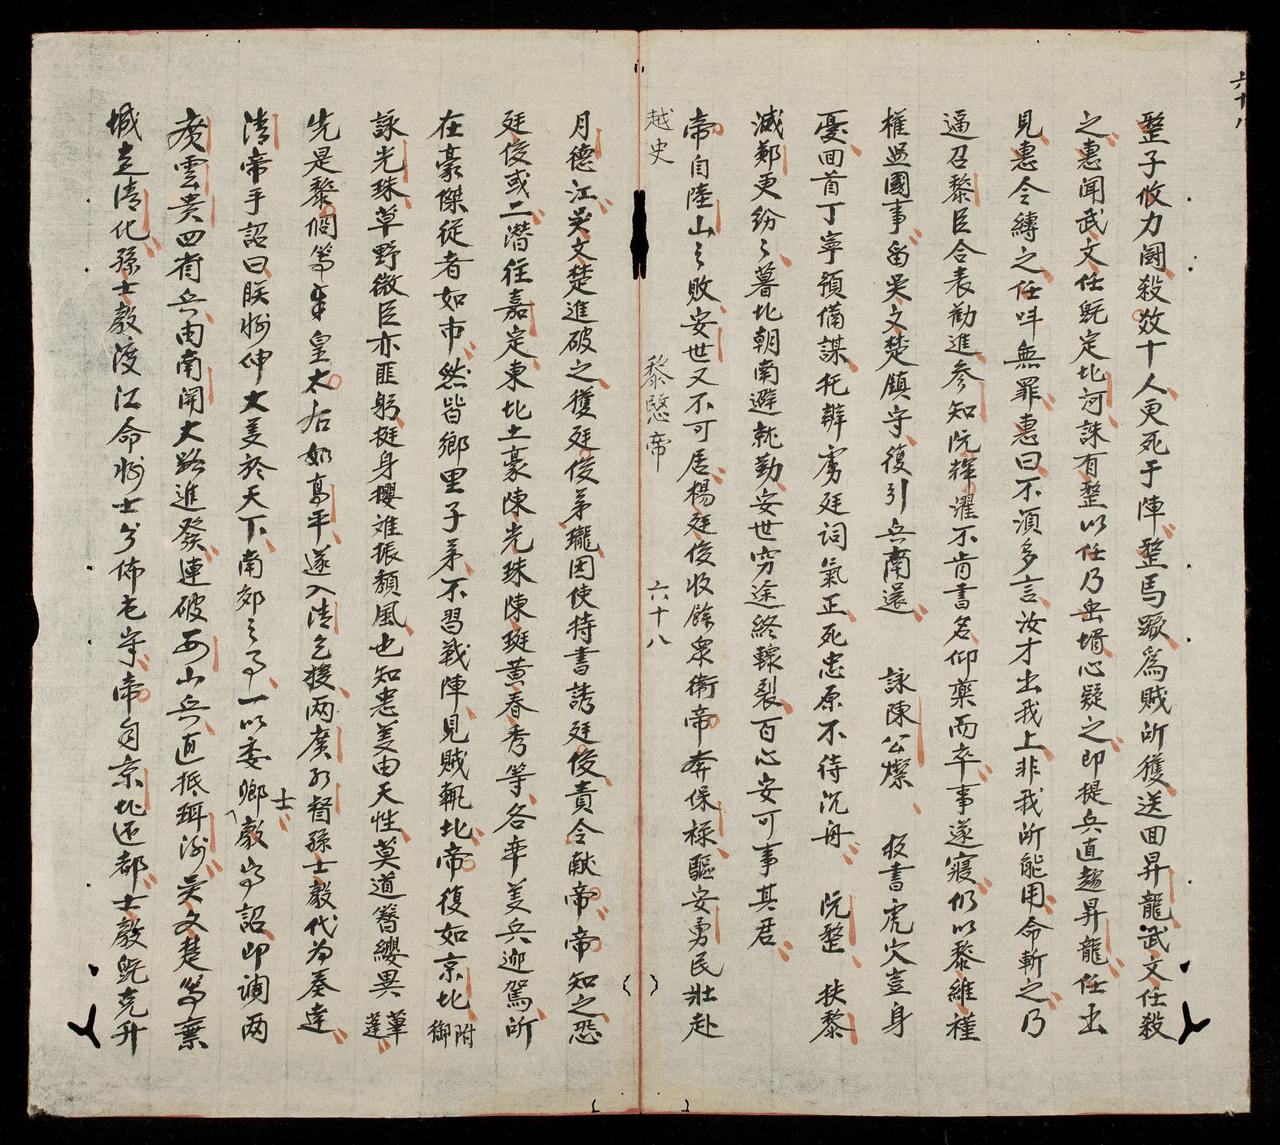 六十八
整子攸力鬭殺效十人更死于陣整馬蹶為賊所獲送回昇龍武文任殺
之惠聞武文任旣定北河誅有整以任乃岳壻心疑之即提兵直趨昇龍任出
見惠令縛之任呌無罪惠曰不須多言汝才出我上非我所能用命斬之乃
逼召黎臣合表勸進參知阮輝濯不肯書名仰藥而卒事遂寢仍以黎維𣖄
權監國事畱吳文楚鎮守復引兵南還 詠陳公燦 投書虎穴豈身
憂回首丁寧預備謀牝辭虜廷詞氣正死忠原不待沉舟 阮整 扶黎
滅鄭更紛々暮北朝南避就勤安世窮途終轘裂百心安可事其君
帝自陸山之敗安世又不可居楊廷俊收餘衆衛帝奔保祿驅安勇民壯赴
越史 黎愍帝 六十八
月德江吳文楚進破之獲廷俊弟瓏因使持書誘廷俊責令献帝帝知之恐
廷俊或二潜往嘉定東北土豪陳光珠陳珽黃春秀等各率義兵迎駕所
在豪傑從者如市然皆鄉里子弟不習戰陣見賊輒北帝復如京北附御
詠光珠草野微臣亦匪躬挺身攖难振頹風也知忠義由天性莫道簪纓異蓽蓬
先是黎侗等奉皇太后如高平遂入清乞援两廣総督孫士毅代为奏達
清帝手詔曰朕將伸大義於天下南郊之事一以委卿士毅奉詔即调两
廣雲貴四省兵由南関大路進發連破西山兵直抵珥河吳文楚等棄
城走清化孫士毅渡江命將士分佈屯守帝自京北还都士毅旣克升